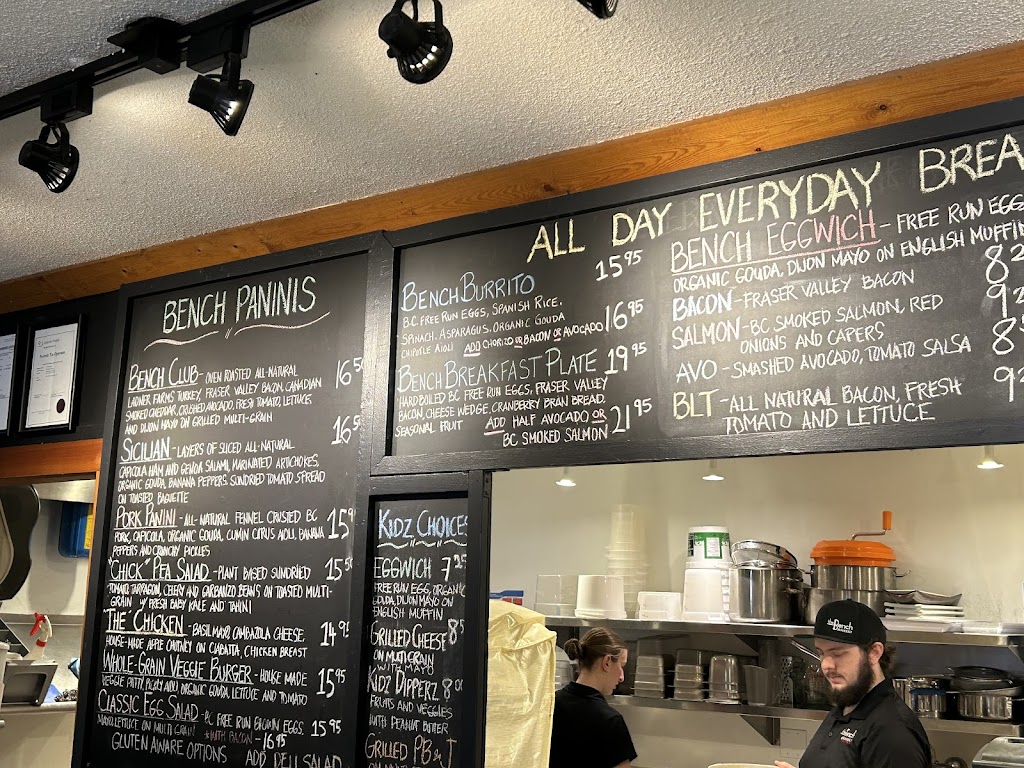 BENCH PANINIS
BENCH CLUB - OVEN ROASTED ALL-NATURAL
LADNER FARMS TURKEY, FRASER VALLEY BACON, CANADIAN
SMOKED CHEDDAR, CRUSHED AVOCADO, FRESH TOMATO, LETTUCE
AND DIJON MAYO ON GRILLED MULTI-GRAIN
16 50
SICILIAN - LAYERS OF SLICED ALL-NATURAL
CAPICOLA HAM AND GENOA SALAMI, MARINATED ARTICHOKES,
ORGANIC GOUDA, BANANA PEPPERS, SUNDRIED TOMATO SPREAD
ON TOASTED BAGUETTE
16 50
PORK PANINI - ALL-NATURAL FENNEL CRUSTED BC
PORK, CAPICOLA, ORGANIC GOUDA, CUMIN CITRUS AIOLI, BANANA
PEPPERS AND CRUNCHY PICKLES
15 9
"CHICK" PEA SALAD - PLANT BASED SUNDRIED
TOMATO, TARRAGON, CELERY AND GARBANZO BEANS ON TOASTED MULTI-
GRAIN W/ FRESH BABY KALE AND TAHINI
15 50
"THE" CHICKEN - BASIL MAYO, CAMBAZOLA CHEESE,
HOUSE-MADE APPLE CHUTNEY ON CIABATTA, CHICKEN BREAST
14 95
WHOLE-GRAIN VEGGIE BURGER - HOUSE MADE
VEGGIE PATTY, MAYO, ORGANIC GOUDA, LETTUCE AND TOMATO
15 95
CLASSIC EGG SALAD - BC FREE RUN BROWN EGGS.
MAYO/LETTUCE ON MULTI GRAIN *WITH BACON - 16 95
15 95
GLUTEN AWARE OPTIONS ADD DELI SALAD
KIDZ CHOICES
EGGWICH 7 25
FREE RUN EGG, ORGANIC
GOUDA, DIJON MAYO ON
ENGLISH MUFFIN
GRILLED CHEESE 8 5
ON MULTIGRAIN
WITH MAYO
KIDZ DIPPERZ 8 00
FRUITS AND VEGGIES
WITH PEANUT BUTTER
GRILLED PB & J
ALL DAY EVERYDAY BREA
BENCH BURRITO 15 95
B.C. FREE RUN EGGS, SPANISH RICE,
SPINACH, ASPARAGUS, ORGANIC GOUDA
CHIPOTLE AIOLI ADD CHORIZO OR BACON OR AVOCADO 16 95
BENCH BREAKFAST PLATE 19 95
HARD BOILED BC FREE RUN EGGS, FRASER VALLEY
BACON, CHEESE WEDGE, CRANBERRY BRAN BREAD,
SEASONAL FRUIT ADD HALF AVOCADO OR
BC SMOKED SALMON 21 95
BENCH EGGWICH - FREE RUN EGG
ORGANIC GOUDA, DIJON MAYO ON ENGLISH MUFFIN
8 2
BACON - FRASER VALLEY BACON
9 2
SALMON - BC SMOKED SALMON, RED
ONIONS AND CAPERS
AVO - SMASHED AVOCADO, TOMATO SALSA
8
BLT - ALL NATURAL BACON, FRESH
TOMATO AND LETTUCE
9